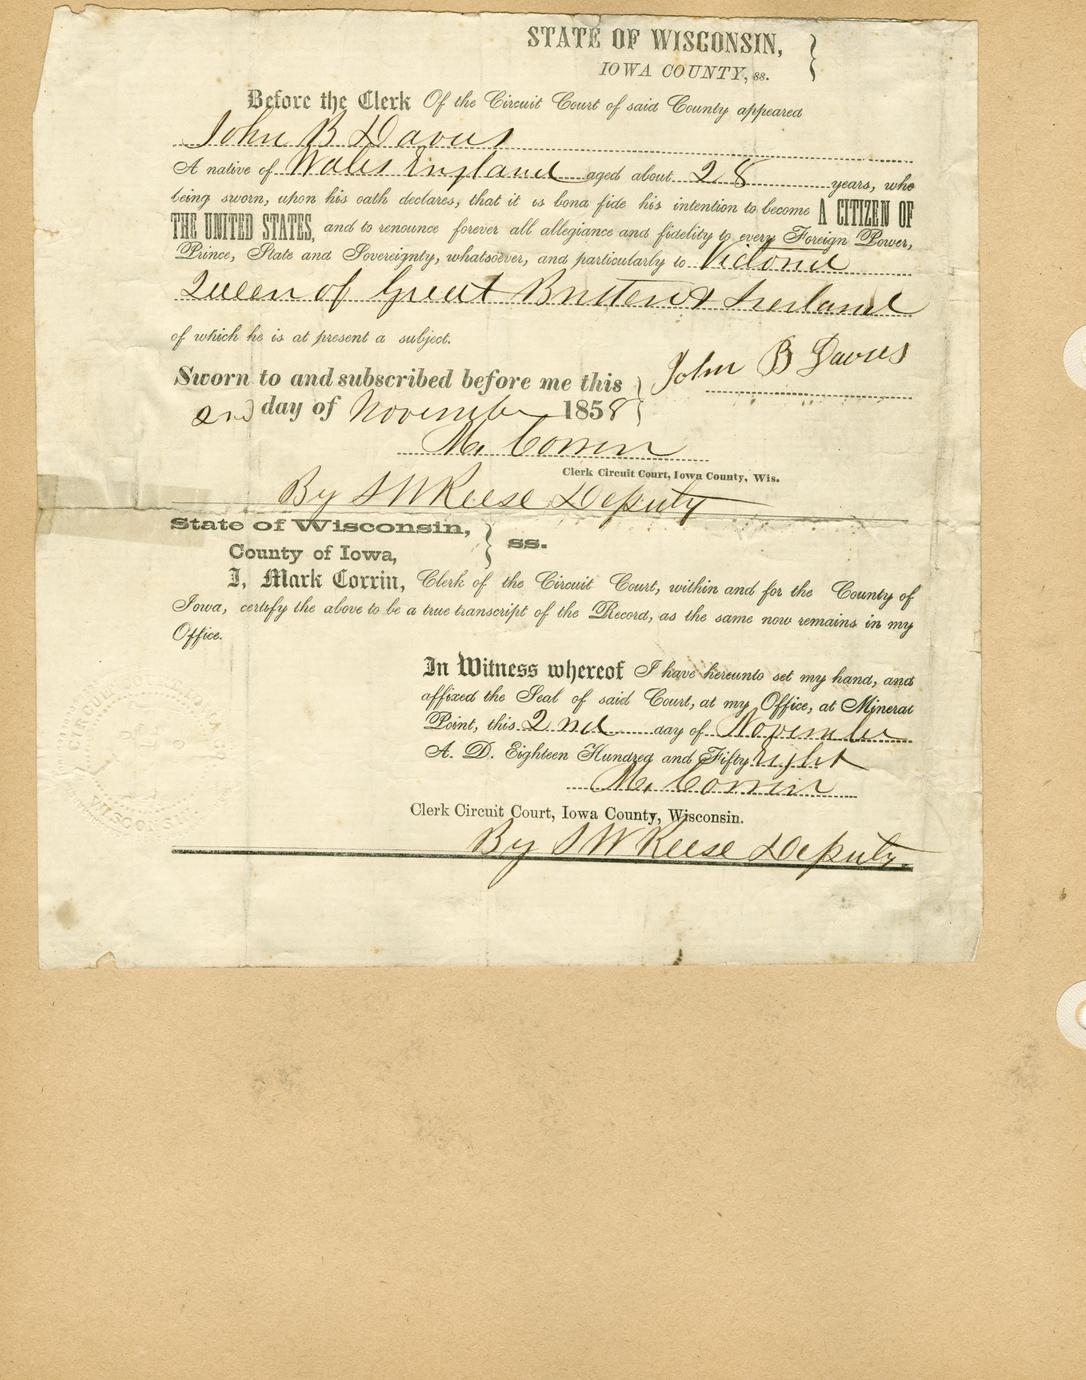 STATE OF WISCONSIN,
IOWA COUNTY, ss.
Before the Clerk Of the Circuit Court of said County appeared
John B Davis
A native of Wales England aged about 28 years, who
being sworn, upon his oath declares, that it is bona fide his intention to become A CITIZEN OF
THE UNITED STATES, and to renounce forever all allegiance and fidelity to every Foreign Power,
Prince, State and Sovereignty, whatsoever, and particularly to Victoria
Queen of Great Britten & Ireland
of which he is at present a subject.
John B Davis
Sworn to and subscribed before me this
2nd day of November 1858
M. Corrin
Clerk Circuit Court, Iowa County, Wis.
By S W Reese Deputy
State of Wisconsin,
County of Iowa, ss.
I, Mark Corrin, Clerk of the Circuit Court, within and for the County of
Iowa, certify the above to be a true transcript of the Record, as the same now remains in my
Office.
In Witness whereof I have hereunto set my hand, and
affixed the Seal of said Court, at my Office, at Mineral
Point, this 2nd day of November
A. D. Eighteen Hundred and Fifty eight
M. Corrin
Clerk Circuit Court, Iowa County, Wisconsin.
By S W Reese Deputy.
WISCONSIN